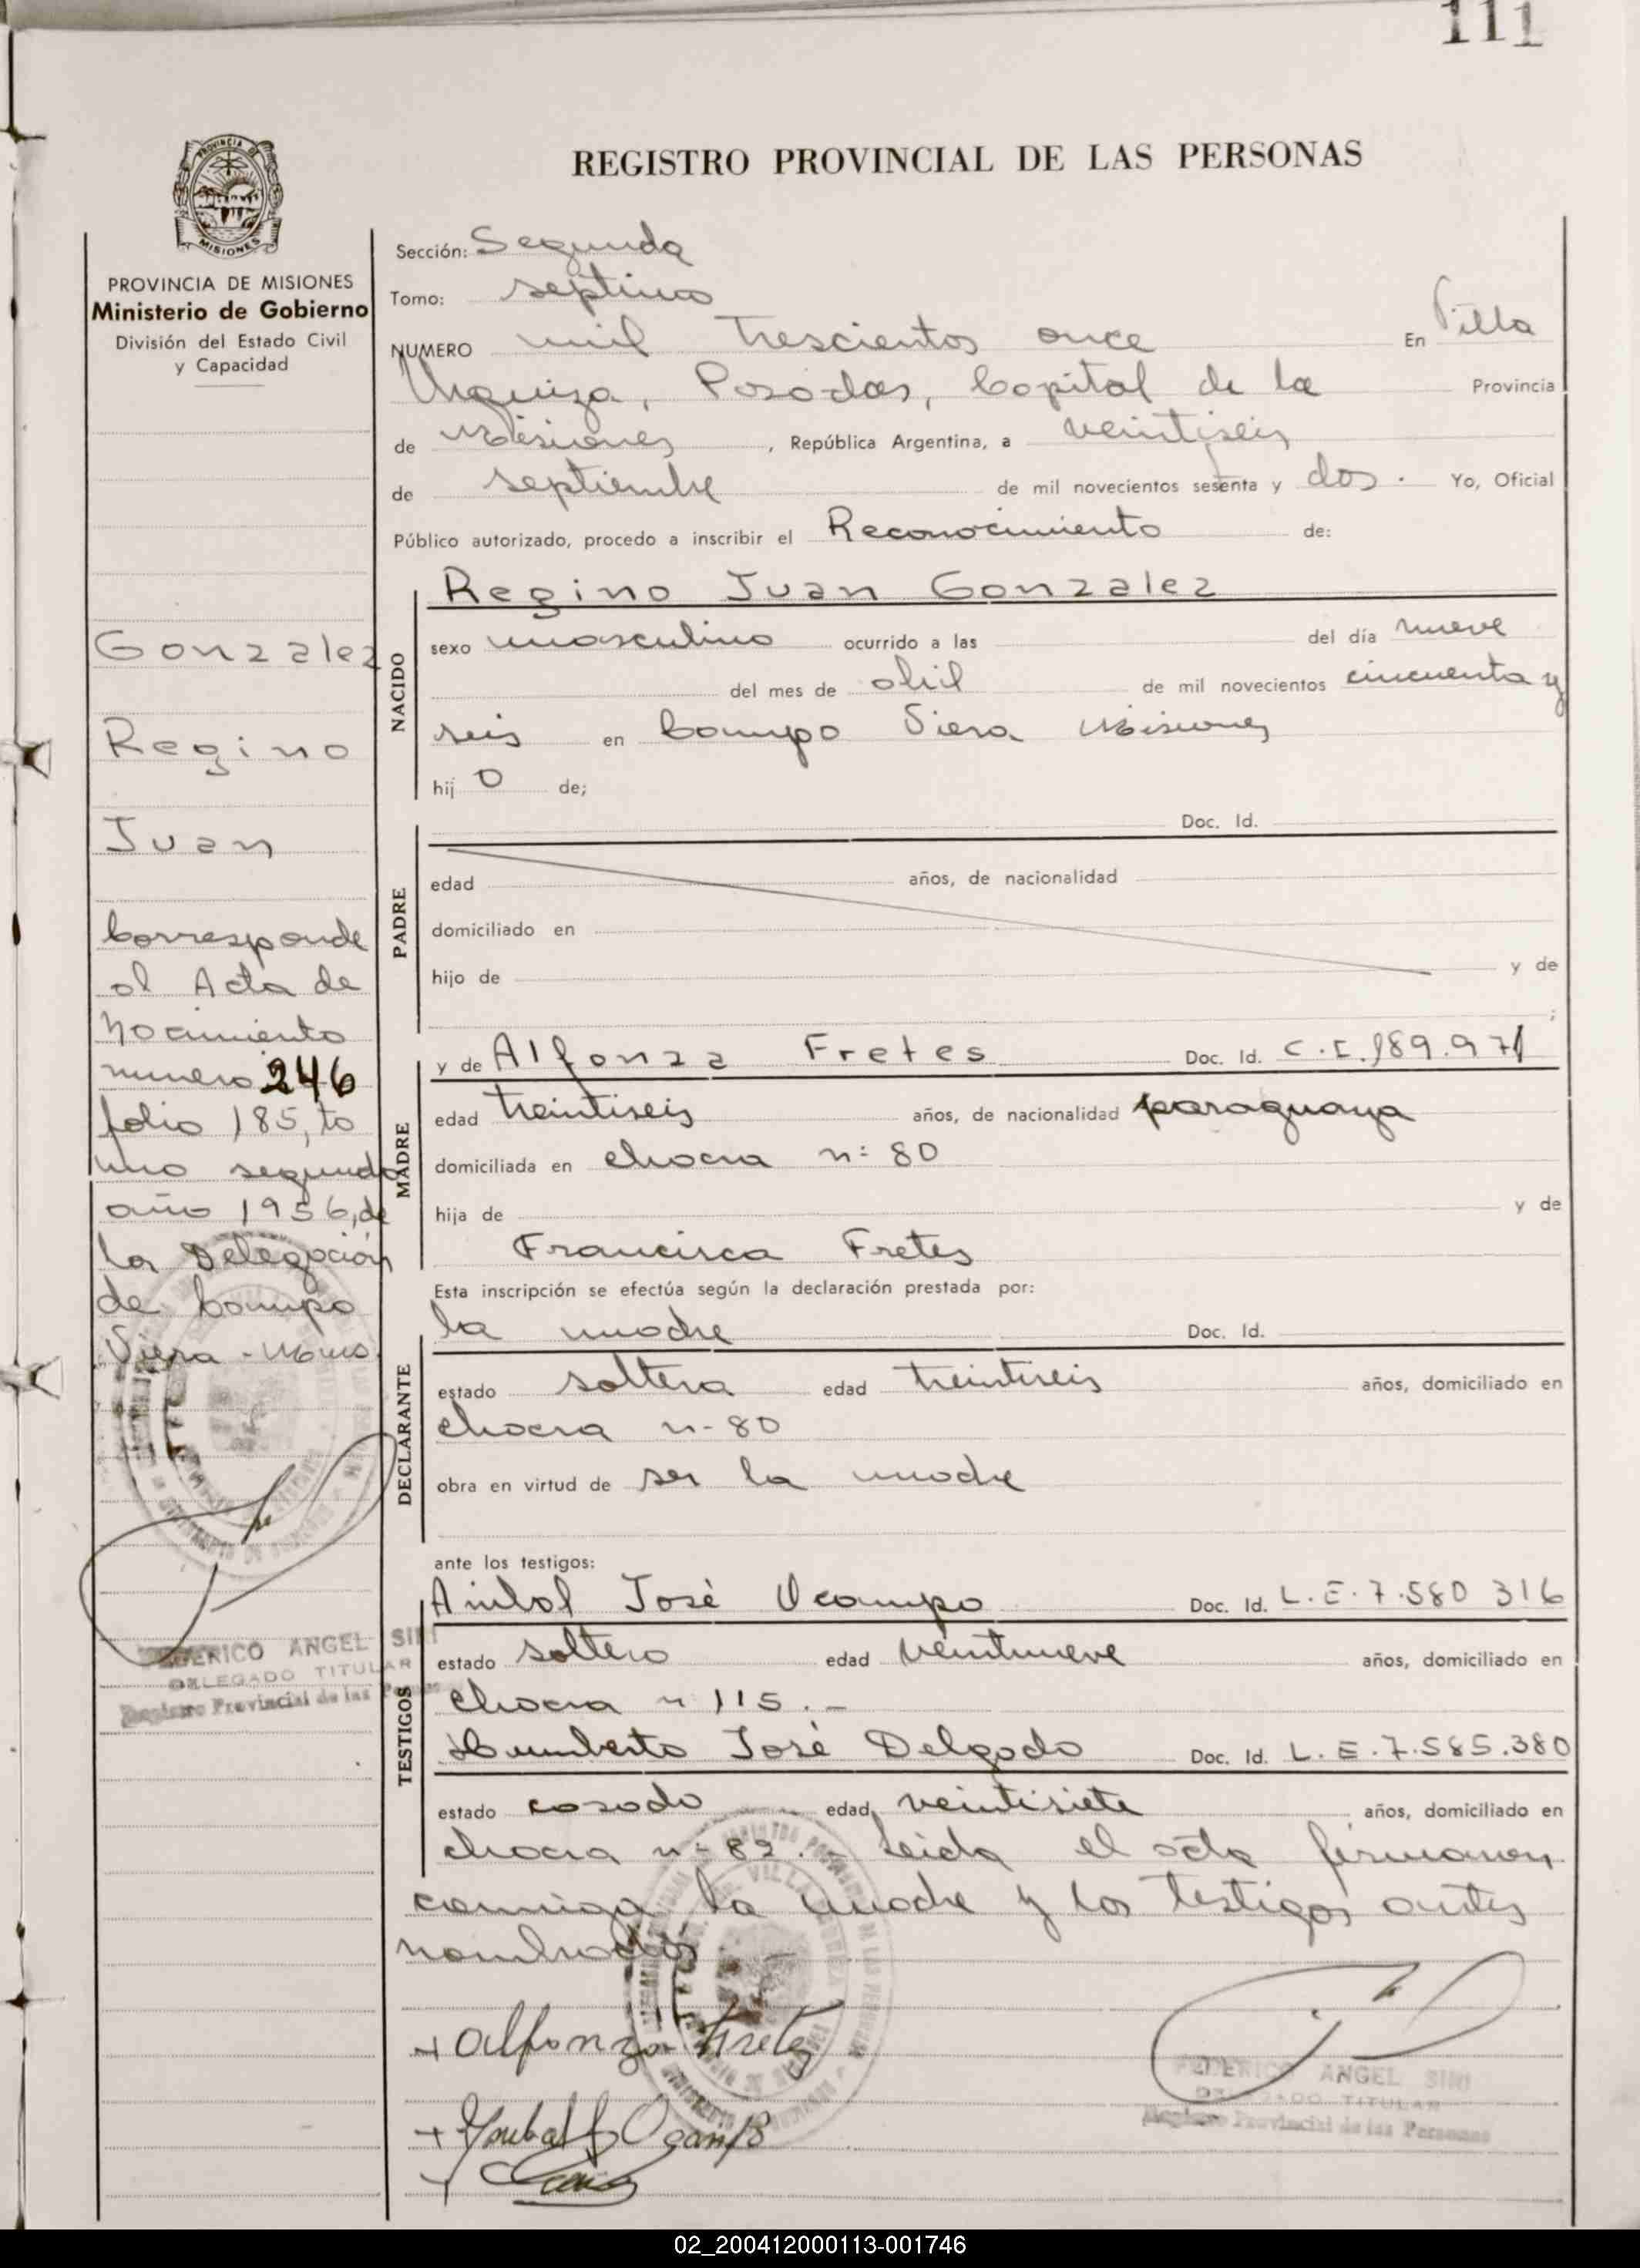 111
REGISTRO PROVINCIAL DE LAS PERSONAS
PROVINCIA DE
MISIONES
PROVINCIA DE MISIONES
Ministerio de Gobierno
División del Estado Civil
y Capacidad
Gonzalez
Regino
Juan
Corresponde
al Acta de
Nacimiento
numero 246
folio 185, to
mo segundo
año 1956, de
la Delegación
de Campo
Viera - Mnes.
FEDERICO ANGEL SIRI
DELEGADO TITULAR
Registro Provincial de las Personas
Sección: Segunda
Tomo: septimo
NUMERO mil trescientos once En Villa
Urquiza, Posadas, Capital de la Provincia
de Misiones, República Argentina, a veintiseis
de septiembre de mil novecientos sesenta y dos. Yo, Oficial
Público autorizado, procedo a inscribir el Reconocimiento de:
NACIDO
Regino Juan Gonzalez
sexo masculino ocurrido a las del día nueve
del mes de abril de mil novecientos cincuenta y
seis en Campo Viera Misiones
hij o de;
PADRE
Doc. Id.
edad años, de nacionalidad
domiciliado en
hijo de y de
;
MADRE
y de Alfonza Fretes Doc. Id. C.I. 189.971
edad treintiseis años, de nacionalidad paraguaya
domiciliada en chacra n: 80
hija de y de
Francisca Fretes
Esta inscripción se efectúa según la declaración prestada por:
DECLARANTE
la madre Doc. Id.
estado soltera edad treintiseis años, domiciliado en
chacra n-80
obra en virtud de ser la madre
ante los testigos:
TESTIGOS
Anibal José Ocampo Doc. Id. L.E. 7.580 316
estado soltero edad veintinueve años, domiciliado en
chacra n 115.-
Humberto José Delgado Doc. Id. L.E. 7.585.380
estado casado edad veintisiete años, domiciliado en
chacra n- 82.- Leida el acta firmanon
conmigo la madre y los testigos antes
nombrados
+ Alfonza Fretes
+ Anibal J Ocampo
+
FEDERICO ANGEL SIRI
DELEGADO TITULAR
Registro Provincial de las Personas
02_200412000113-001746